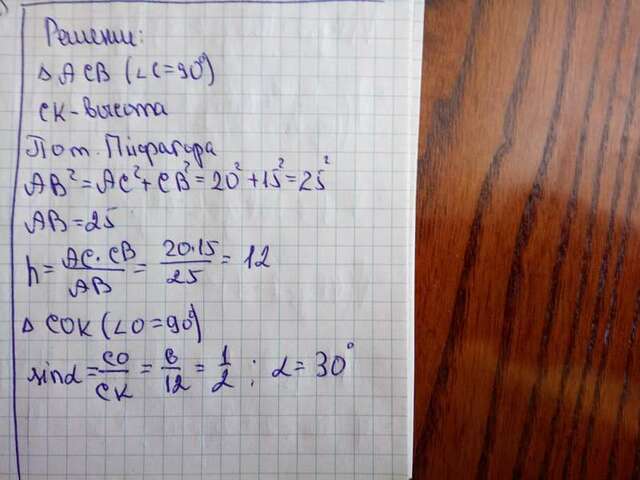 Решение:
Δ ACB (∠C=90°)
CK - высота
По т. Пифагора
AB² = AC² + CB² = 20² + 15² = 25²
AB = 25
h = AC · CB / AB = 20·15 / 25 = 12
Δ COK (∠O=90°)
sinα = CO / CK = 6 / 12 = 1 / 2 ; α = 30°